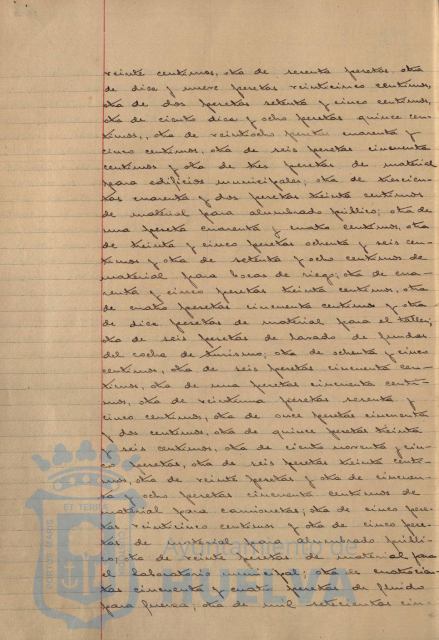 veinte centimos, otra de sesenta pesetas, otra
de diez y nueve pesetas veinticinco centimos,
otra de dos pesetas setenta y cinco centimos,
otra de ciento diez y ocho pesetas quince cen-
timos, otra de veintiocho pesetas cuarenta y
cinco centimos, otra de seis pesetas cincuenta
centimos y otra de tres pesetas de material
para edificios municipales; otra de trescien-
tas cuarenta y dos pesetas treinta centimos
de material para alumbrado público; otra de
una peseta cuarenta y cuatro centimos, otra
de treinta y cinco pesetas ochenta y seis cen-
timos y otra de setenta y ocho centimos de
material para bocas de riego; otra de cua-
renta y cinco pesetas treinta centimos, otra
de cuatro pesetas cincuenta centimos y otra
de diez pesetas de material para el taller;
otra de seis pesetas de lavado de fundas
del coche de turismo; otra de ochenta y cinco
centimos, otra de seis pesetas cincuenta cen-
timos, otra de una pesetas cincuenta centi-
mos, otra de veintiuna pesetas sesenta y
cinco centimos, otra de once pesetas cincuenta
y dos centimos, otra de quince pesetas treinta
y seis centimos, otra de ciento noventa y cin-
co pesetas, otra de seis pesetas treinta centi-
mos, otra de veinte pesetas y otra de cincuen-
ta y ocho pesetas cincuenta centimos de
material para camionetas; otra de cinco pese-
tas veinticinco centimos y otra de cinco pese-
tas de material para alumbrado públi-
co; otra de veinte pesetas de material para
el laboratorio municipal; otra de cuatrocien-
tas cincuenta y cuatro pesetas de fluido
para fuerza; otra de mil setecientas cin-
Ayuntamiento de
HUELVA